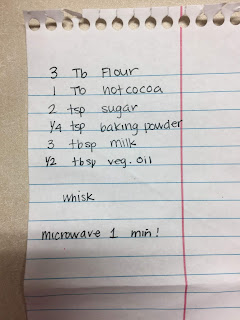 3 Tb Flour
1 Tb hot cocoa
2 tsp sugar
1/4 tsp baking powder
3 tbsp milk
1/2 tbsp veg. oil
whisk
microwave 1 min!